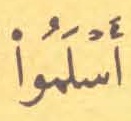 أَسْلَمُواْ